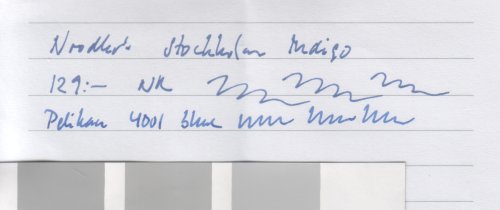 Noodler's Stockholm Indigo
129:- NK
Pelikan 4001 blue